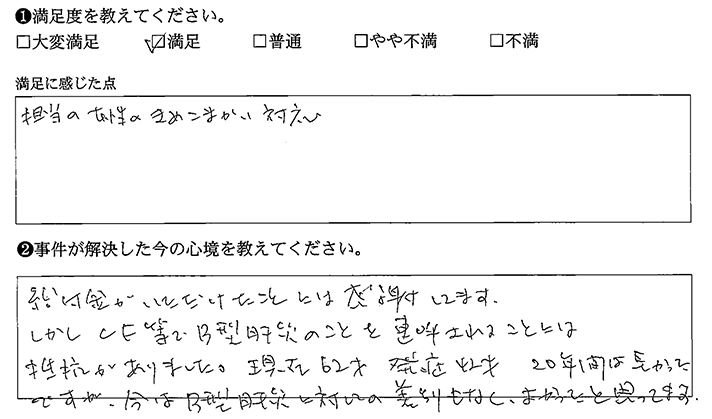 ❶満足度を教えてください。
□大変満足 ☑満足 □普通 □やや不満 □不満
満足に感じた点
担当の女性のきめこまかい対応
❷事件が解決した今の心境を教えてください。
給付金がいただけたことには感謝してます。
しかしCF等でB型肝炎のことを連呼されることには
抵抗がありました。現在62才 発症42才 20年間は長かった
ですが、今はB型肝炎に対しての差別もなく、よかったと思ってます。